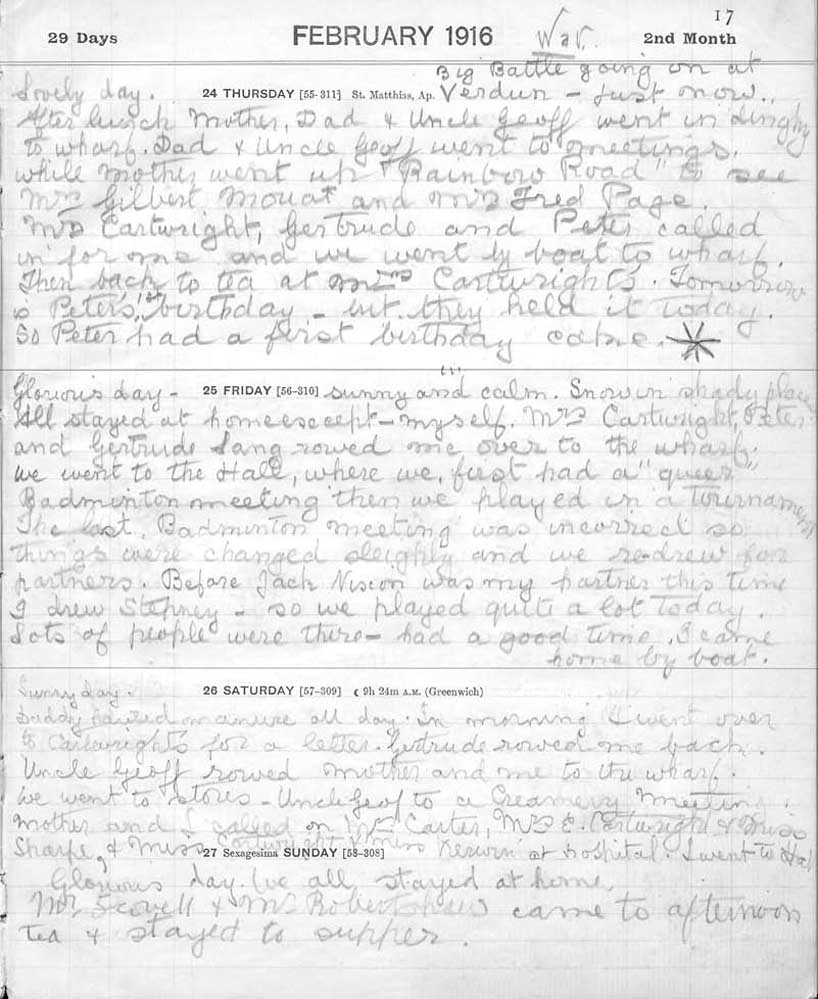 17
29 Days FEBRUARY 1916 War. 2nd Month
Big Battle going on at
Lovely day. 24 THURSDAY [55-311] St. Matthias, Ap. Verdun - just now.
After lunch Mother, Dad & Uncle Geoff went in dinghy
to wharf. Dad & Uncle Geoff went to meetings.
while Mother went up "Rainbow Road" to see
Mrs Gilbert Mouat and Mrs Fred Page.
Mrs Cartwright, Gertrude and Peter called
in for me and we went by boat to wharf.
Then back to tea at Mrs Cartwright's. Tomorrow
is Peter's 1st birthday - but they held it today.
So Peter had a first birthday cake.
Glorious day - 25 FRIDAY [56-310] sunny and calm. Snow in shady places
All stayed at home escept - myself. Mrs Cartwright, Peter
and Gertrude Lang rowed me over to the wharf.
we went to the Hall, where we, first had a "queer"
Badminton meeting then we played in a Tournament
The last Badminton meeting was incorrect so
things were changed sleighly and we redrew for
partners. Before Jack Nixon was my partner this time
I drew Stepney - so we played quite a lot today.
Lots of people were there - had a good time. I came
home by boat.
Sunny day. 26 SATURDAY [57-309] ☾ 9h 24m A.M. (Greenwich)
Daddy hauled manure all day. In morning I went over
to Cartwrights for a letter. Gertrude rowed me back.
Uncle Geoff rowed mother and me to the wharf.
We went to stores - Uncle Geof to a Creamery Meeting.
Mother and I called on Mrs Carter, Mrs E. Cartwright & Miss
Sharpe, & Miss 27 Sexagesima SUNDAY [58-308] Miss at hospital. I went to
Glorious day. We all stayed at home.
Mr Scovell & Mr Robertshaw came to afternoon
tea & stayed to supper.